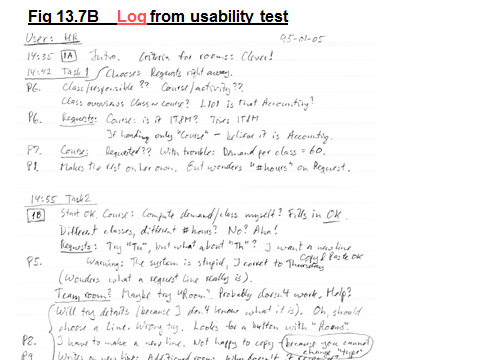 Fig 13.7B Log from usability test
User: HB 95-01-05
14:35 1A Intro. Criteria for rooms: Clever!
14:42 Task 1 Chooses Requests right away.
P6. Class/responsible?? Course/activity??
Class overviews Class or course? L101 is that Accounting?
P6. Requests: Course: is it IT8M? Tries IT8M
If heading only "Course" – believe it is Accounting.
P7. Course: Requested?? With trouble: Demand per class = 60.
P1. Makes the rest on her own. But wonders "# hours" on Request.
14:55 Task 2
1B Start OK. Course: Compute demand/class myself? Fills in OK
Different classes, different # hours? No? Aha!
Requests: Try "Tu", but what about "Th"? I want a new line
Copy & Paste OK
P5. Warning: The system is stupid, I corret to Thursday
(Wonders what a request line really is).
Team room? Maybe try "Room". Probably doesn't work. Help?
Will try details (because I don't know what it is). Oh, should
choose a Line. Wrong try. Looks for a button with "Rooms"
P2. I have to make a new line. Not happy to copy – because you cannot
change "type"
P9 on new line: Additional rooms. Why doesn't it